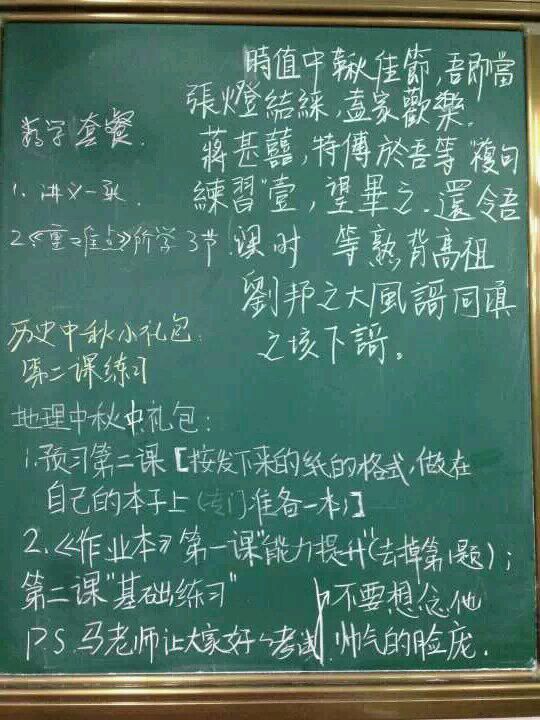 時值中鞦佳節,吾即當
張燈結綵,盍家歡樂.
蔣甚囍,特傅於吾等"復句
練習"壹,望畢之.還令吾
等熟背高祖
劉邦之大風謌同項
之垓下謌。
数学套餐.
1. 讲义一张.
2.《重难点》阶学3节课时
历史中秋小礼包:
第二课练习
地理中秋中礼包:
1.预习第二课【按发下来的纸的格式,做在
自己的本子上(专门准备一本)】
2.《作业本》第一课"能力提升"(去掉第1题);
第二课"基础练习"
P.S.马老师让大家好好考试,不要想念他
帅气的脸庞.